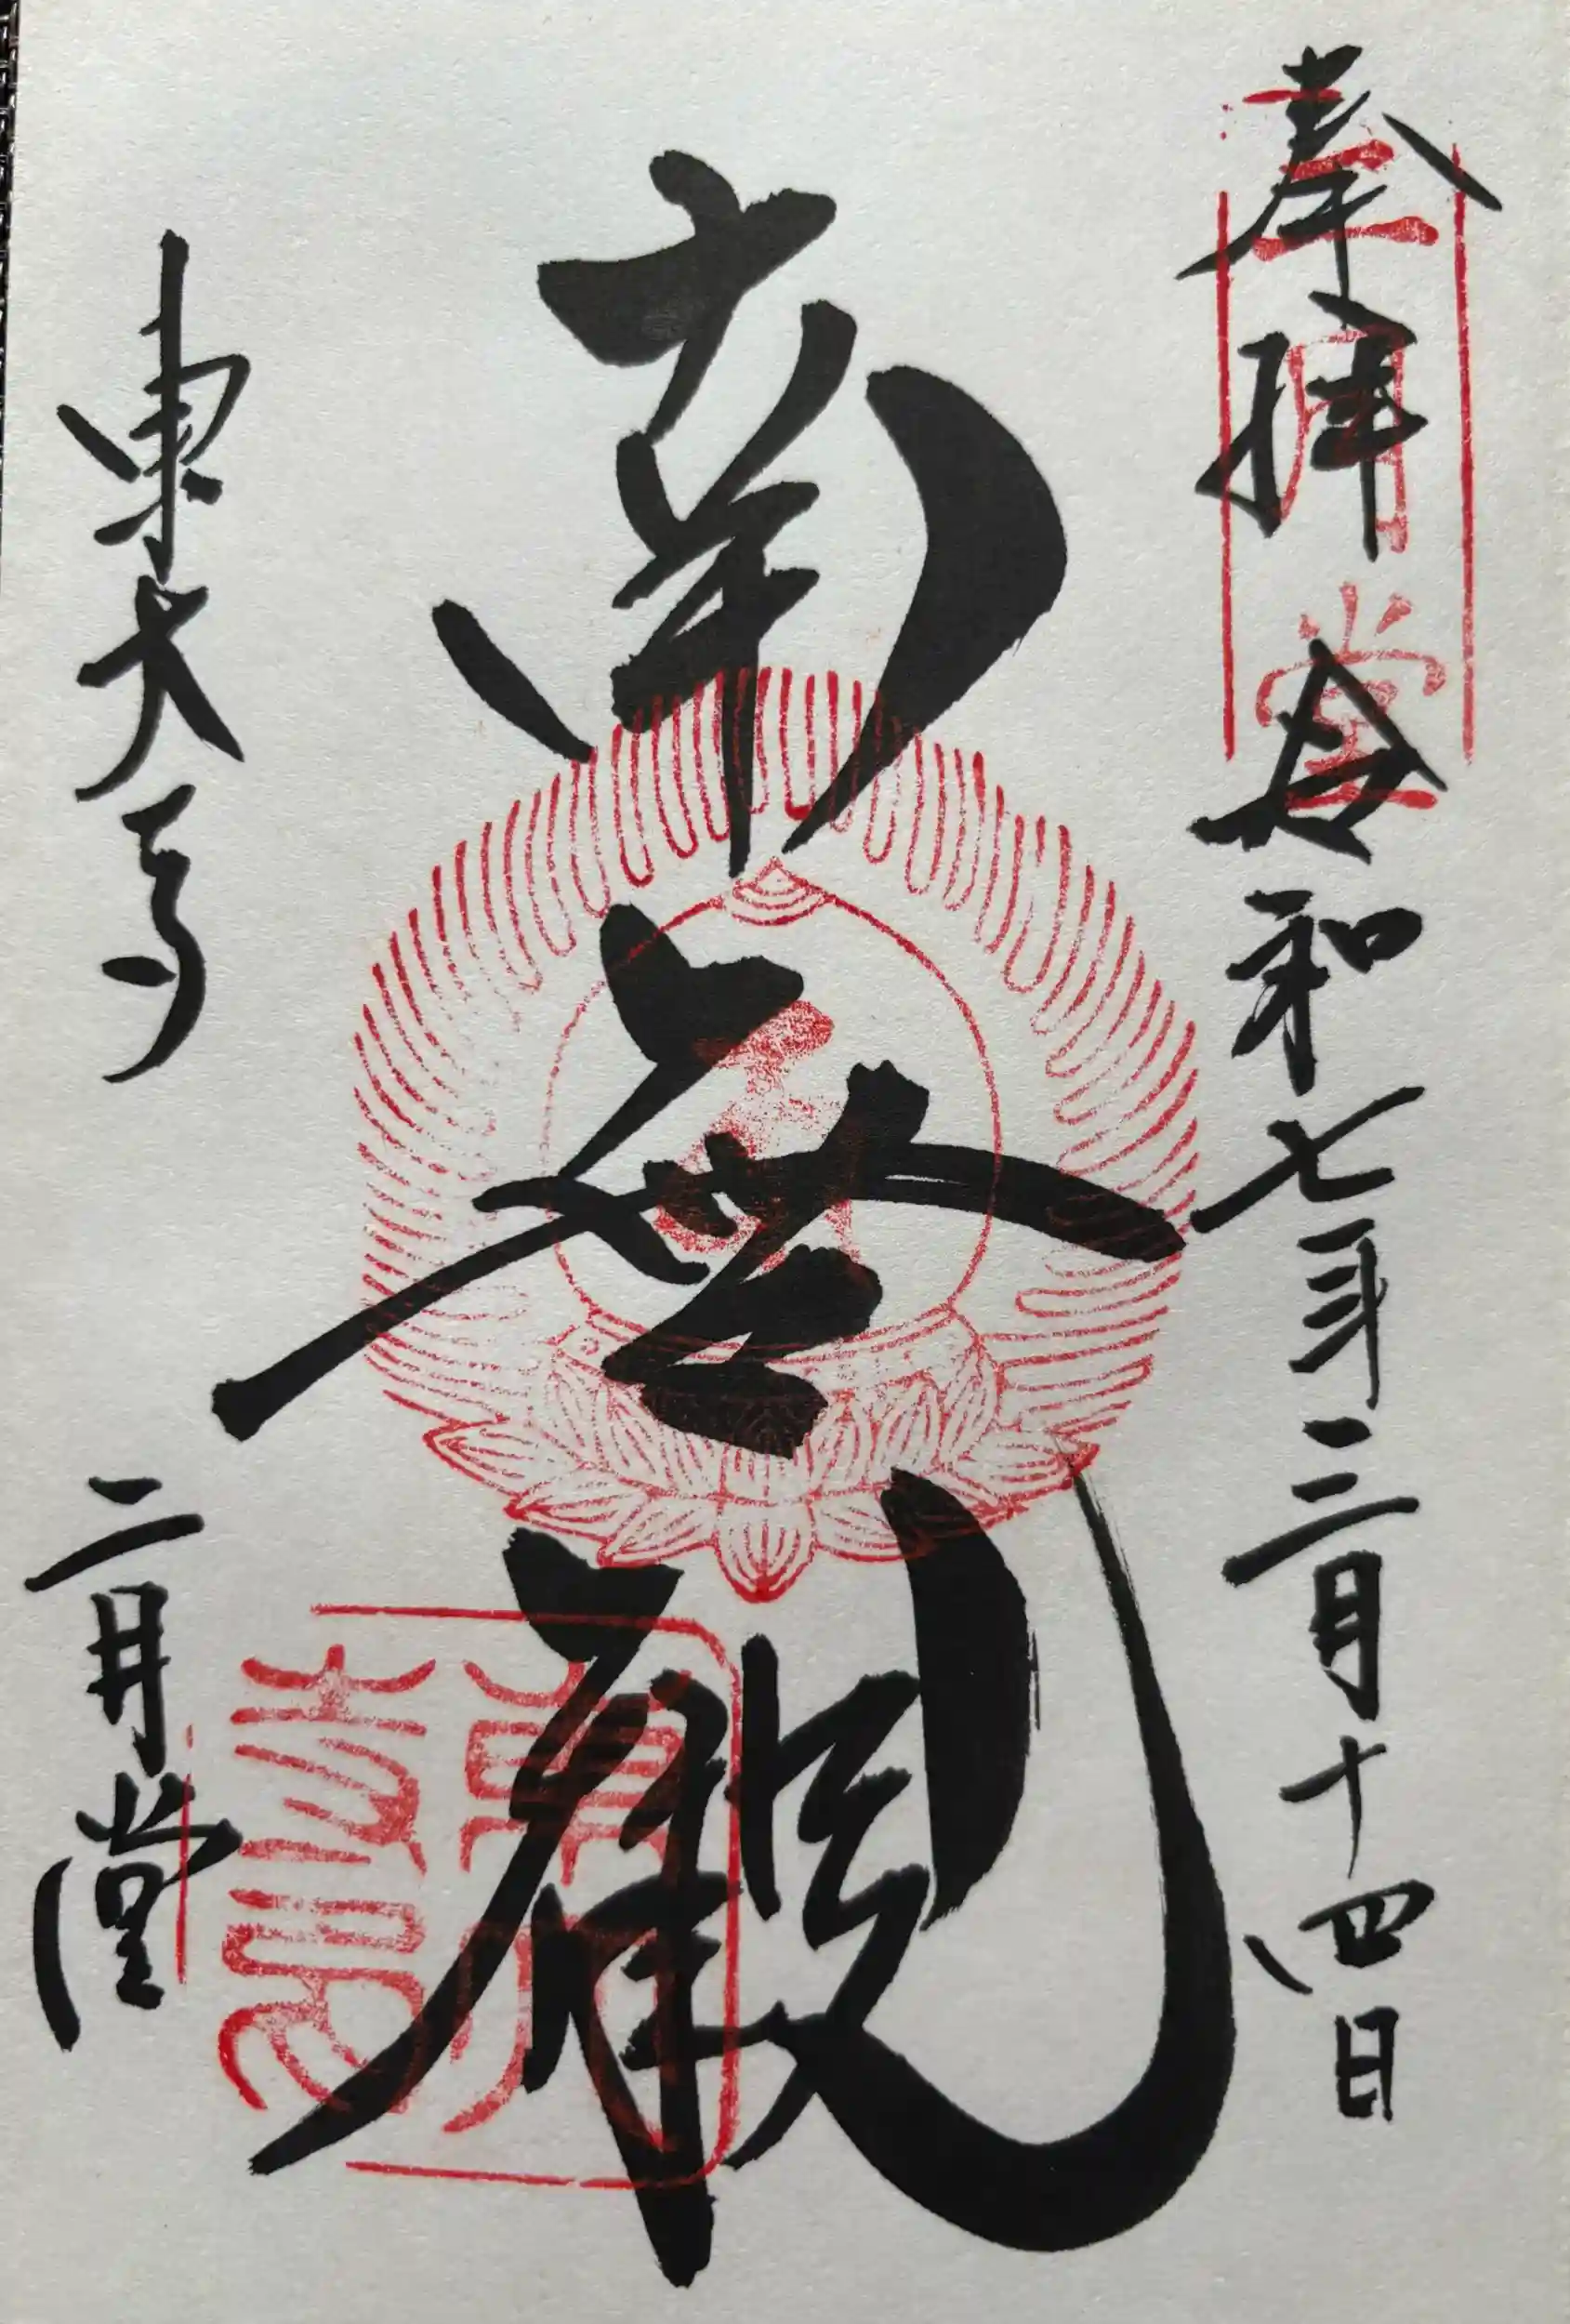 奉拝 令和七年三月十四日
二月堂
南無観
東大寺 二月堂
東大寺印